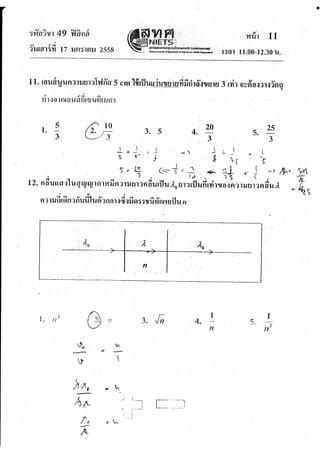 รหัสวิชา 49 ฟิสิกส์
วันเสาร์ที่ 17 มกราคม 2558
สทศ
NIETS
หน้า 11
เวลา 11.00-12.30 น.
11. เลนส์นูนความยาวโฟกัส 5 cm ใช้เป็นแว่นขยายที่มีกำลังขยาย 3 เท่า จะต้องวางวัตถุ
ห่างจากเลนส์กี่เซนติเมตร
1. 5/3 2. 10/3 3. 5 4. 20/3 5. 25/3
12. คลื่นแสงในสุญญากาศมีความยาวคลื่นเป็น λ₀ ยาวเป็นกี่เท่าของความยาวคลื่น λ
ความถี่เดียวกันนี้ในตัวกลางซึ่งมีดรรชนีหักเหเป็น n
λ₀ λ λ₀
n
1. n² 2. n 3. √n 4. 1/n 5. 1/n²